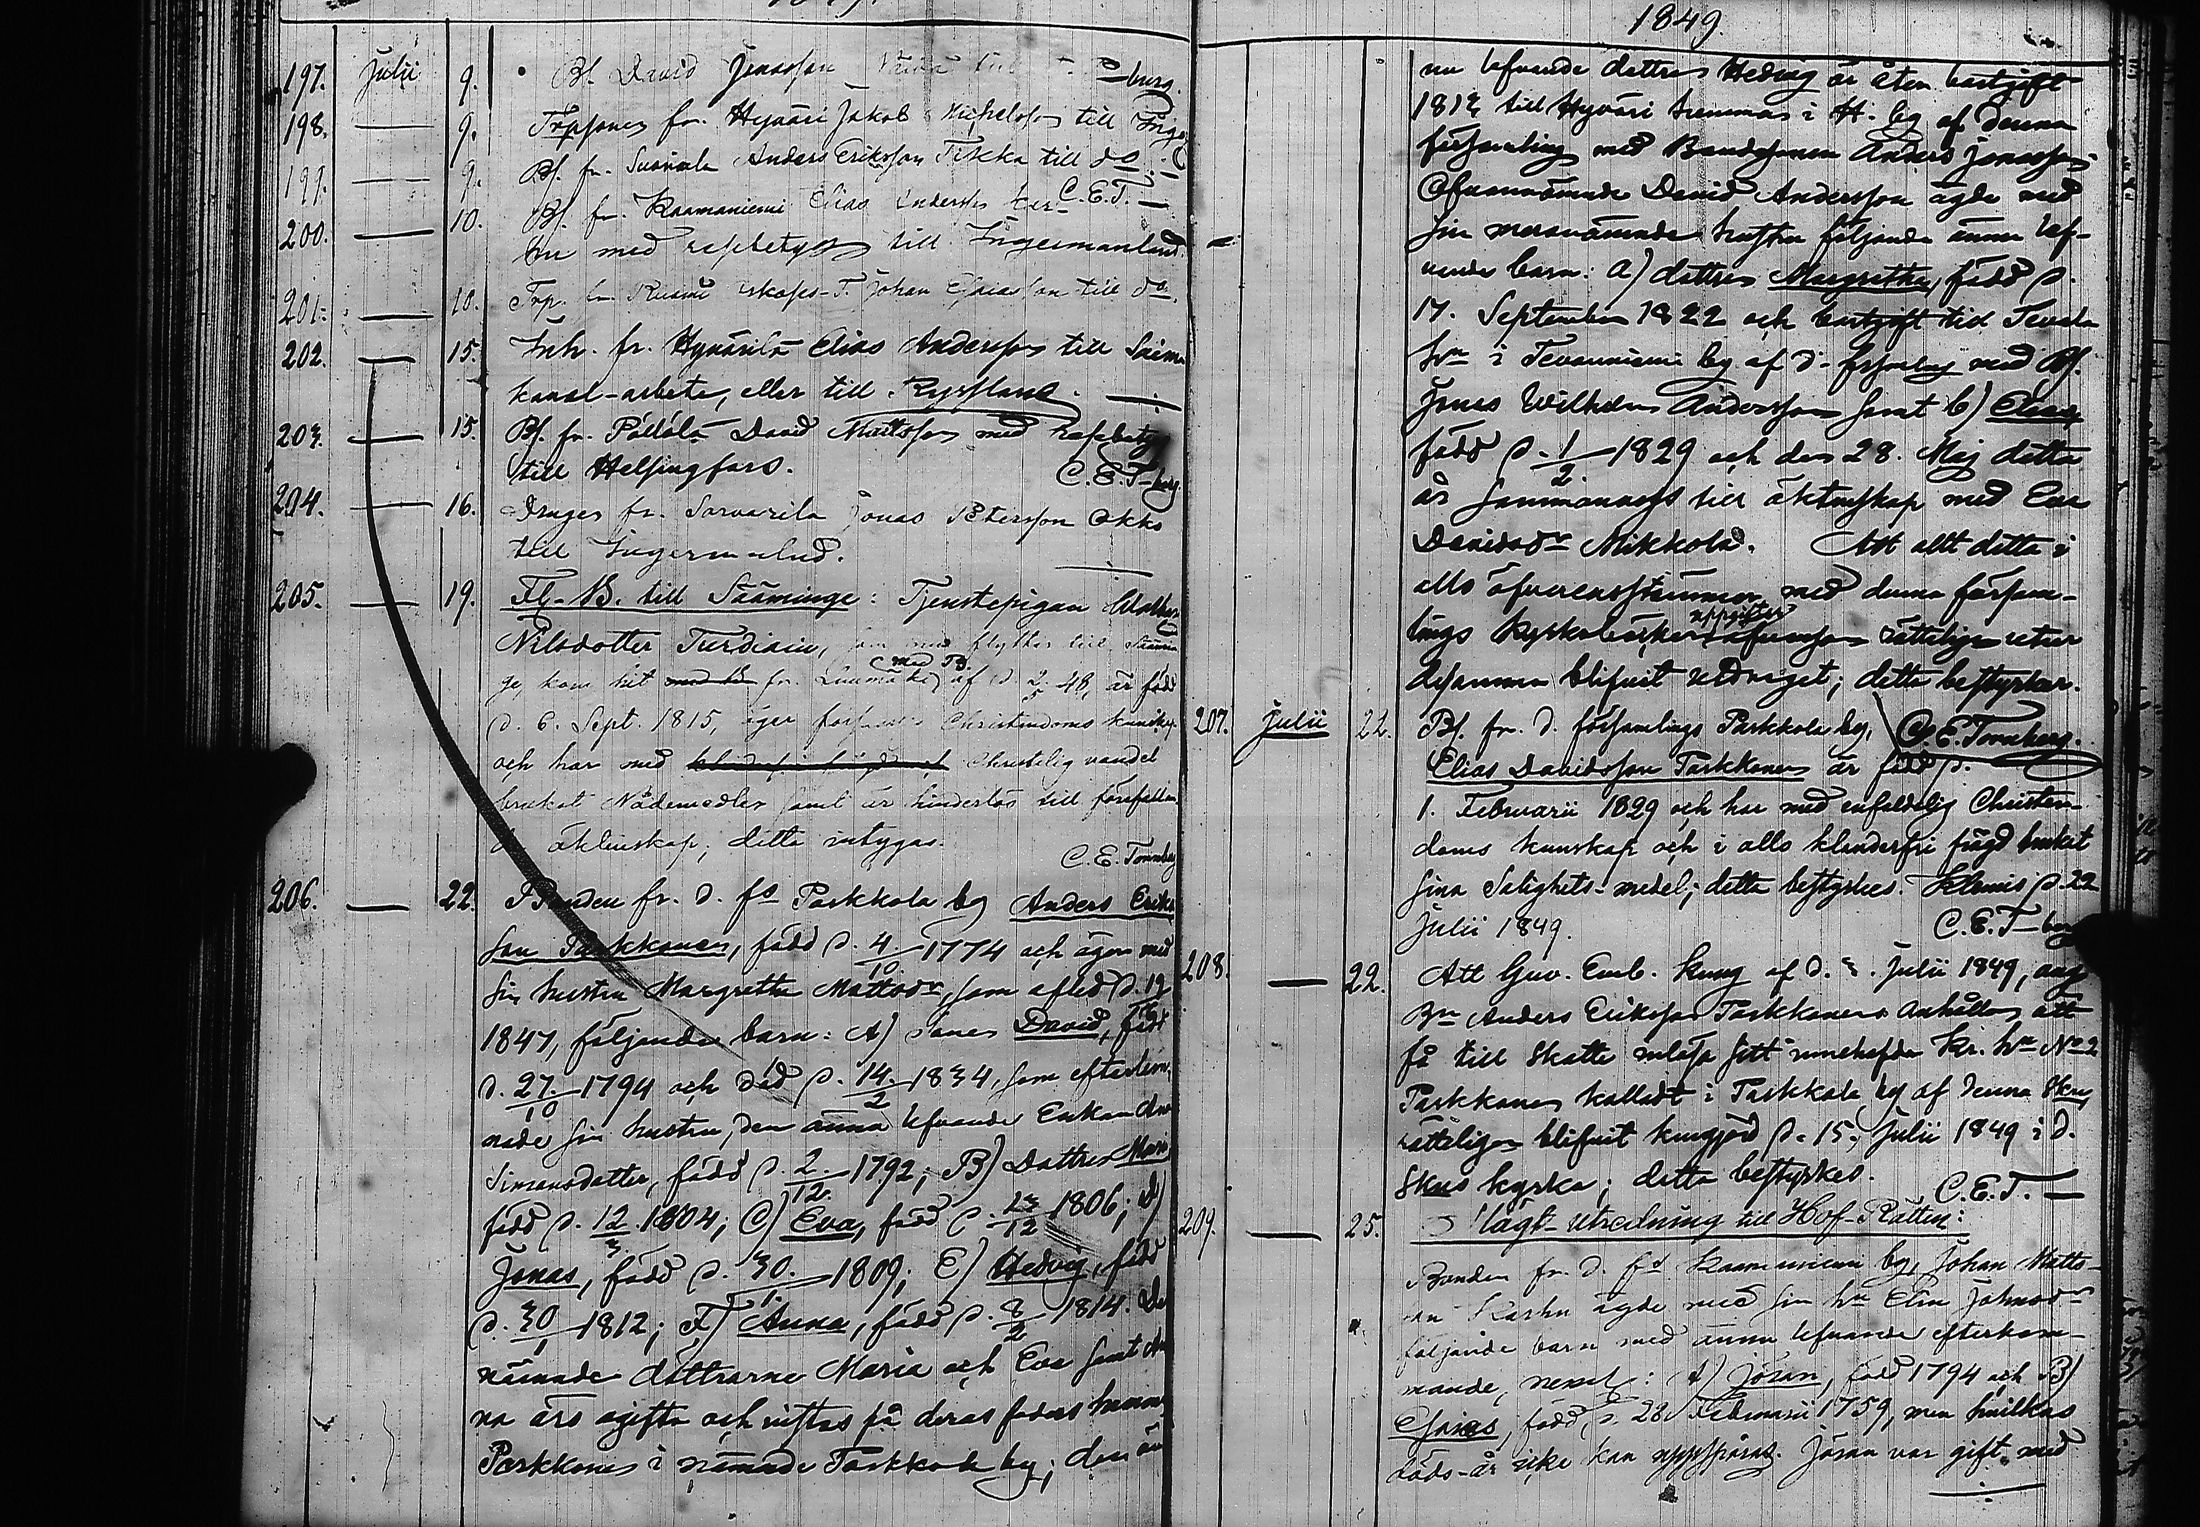 1849.
197. Julii 9. Bf. David Jonasson till burg.
198. — 9. Trpsonen fr. Hyväri Jakob Michelsson till Inge
199. — 9. Bf. fr. Suvariala Anders Eriksson Tikka till do.
C.E.T. —
200. — 10. Bf. fr. Kaamaniemi Elias Andersson
med resebetyg till Ingermanland.
201. — 10. Trp. Johan Esaiasson till do.
202. — 15. Inh. fr. Hyvärilä Elias Andersson till Saima
kanal-arbete, eller till Ryssland.
203. — 15. Bf. fr. Pöllölä David Mattsson med resebetyg
till Helsingfors. C.E.T—berg
204. — 16. Drager fr. Sarvarila Jonas Petersson Okko
till Ingermanland.
205. — 19. Fl.-B. till Sääminge: Tjenstepigan
Nilsdotter Turdiain, som nu flyttar till Säämin
ge, kom hit fr. Luumäki med B. af d. 2/5 48, är född
d. 6. Sept. 1815, äger Christendoms kunskap
och har med Christelig vandel
brukat Nådemedlen samt är hinderlös till förefallan
äktenskap; detta intygas.
C.E. Tornberg
206. — 22. Bonden fr. d. fs Parkkola by Anders Eriks
son Parkkonen, född d. 4/10 1774 och äger med
sin hustru Margretha Mattsdr, som afled d. 19
1847, följande barn: A) sonen David, född
d. 27/10 1794 och död d. 14/2 1834, som efterlem
nade sin hustru, den ännu lefvande Enkan
Simonsdotter, född d. 2/12 1792; B) Dottren Maria
född d. 12/3 1804; C) Eva, född d. 23/12 1806; D)
Jonas, född d. 30/1 1809; E) Hedvig, född
d. 30/1 1812; F) Anna, född d. 8/2 1814. De
nämnde döttrarne Maria och Eva samt An
na äro ogifta och vistas på deras faders hemman
Parkkonen i nämnde Parkkola by; den än
1849.
nu lefvande dottren Hedvig är åter bortgift
1813 till Hyväri hemman i H. by af denna
församling med Bondesonen Anders Jonasson
Ofvannämnde David Andersson ägde med
sin mernämnde hustru följande ännu lef-
vande barn: a) dottren Margretha, född d.
17. September 1822 och bortgift till Tevala
hn i Tevaniemi by af d. försmlng med Bf.
Jonas Wilhelm Andersson samt b) Elias,
född d. 1/2 1829 och den 28. Maj detta
år sammanvigd till äktenskap med Eva
Davidsdr Mikkola. Att allt detta i
allo öfverensstämmer med denna försam-
lings kyrkoböcker uppgifter rätteligen
desamma blifvit utdraget; detta bestyrker.
C.E. Tornberg.
207. Julii 22. Bf. fr. d. församlings Parkkola by,
Elias Davidsson Parkkonen är född d.
1. Februarii 1829 och har med enfaldelig Christen-
doms kunskap och i allo klanderfri frägd brukat
sina Salighets-medel; detta bestyrkes. Klemis d. 22
Julii 1849. C.E.T—berg
208. — 22. Att Guv. Emb. kung. af d. 3. Julii 1849, ang
Bn Anders Eriksson Parkkonens anhållan att
få till Skatte inlösa sitt innehafda Kr. hn No 2
Parkkonen kalladt i Parkkola by af denna Skn,
rätteligen blifvit kungjord d. 15. Julii 1849 i d.
Skns kyrka; detta bestyrkes. C.E.T. —
209. — 25. Slägt-utredning till Hof-Rätten:
Bonden fr. d. fs Kaamaniemi by, Johan Matts-
son Karhu ägde med sin hu Elin Johansdr
följande barn med ännu lefvande efterkom-
mande, neml: A) Jöran, född 1794 och B)
Esaias, född d. 28. Februarii 1759, men hvilkas
döds-år icke kan uppspöras. Jöran var gift med